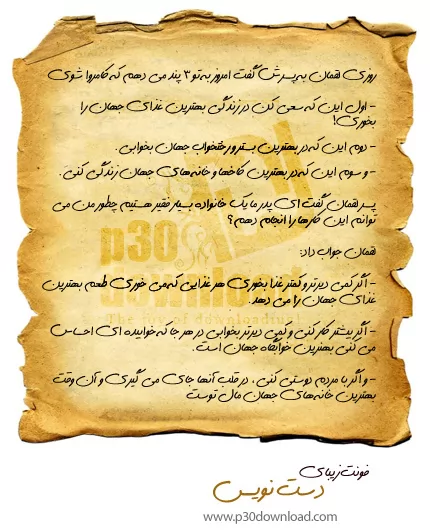 روزی لقمان به پسرش گفت امروز به تو ۳ پند می دهم که کامروا شوی
- اول این که سعی کن در زندگی بهترین غذای جهان را
بخوری!
- دوم این که در بهترین بستر و رختخواب جهان بخوابی.
- و سوم این که در بهترین کاخها و خانه های جهان زندگی کنی.
پسر لقمان گفت ای پدر ما یک خانواده بسیار فقیر هستیم چطور من می
توانم این کارها را انجام دهم؟
لقمان جواب داد:
- اگر کمی دیرتر و کمتر غذا بخوری هر غذایی که می خوری طعم بهترین
غذای جهان را می دهد.
- اگر بیشتر کار کنی و کمی دیرتر بخوابی در هر جا که خوابیده ای احساس
می کنی بهترین خوابگاه جهان است.
- و اگر با مردم دوستی کنی، در قلب آنها جای می گیری و آن وقت
بهترین خانه های جهان مال توست
p30
download
The joy of downloading!
فونت زیبای
دست نویس
www.p30download.com